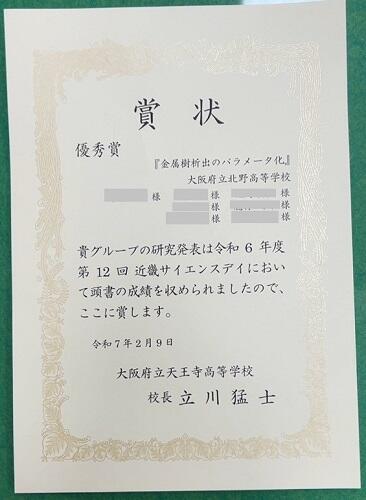 賞状
優秀賞
『金属樹析出のパラメータ化』
大阪府立北野高等学校
様 様 様
様 様
様 様
貴グループの研究発表は令和６年度
第12回近畿サイエンスデイにおい
て頭書の成績を収められましたので、
ここに賞します。
令和７年２月９日
大阪府立天王寺高等学校
校長 立川猛士